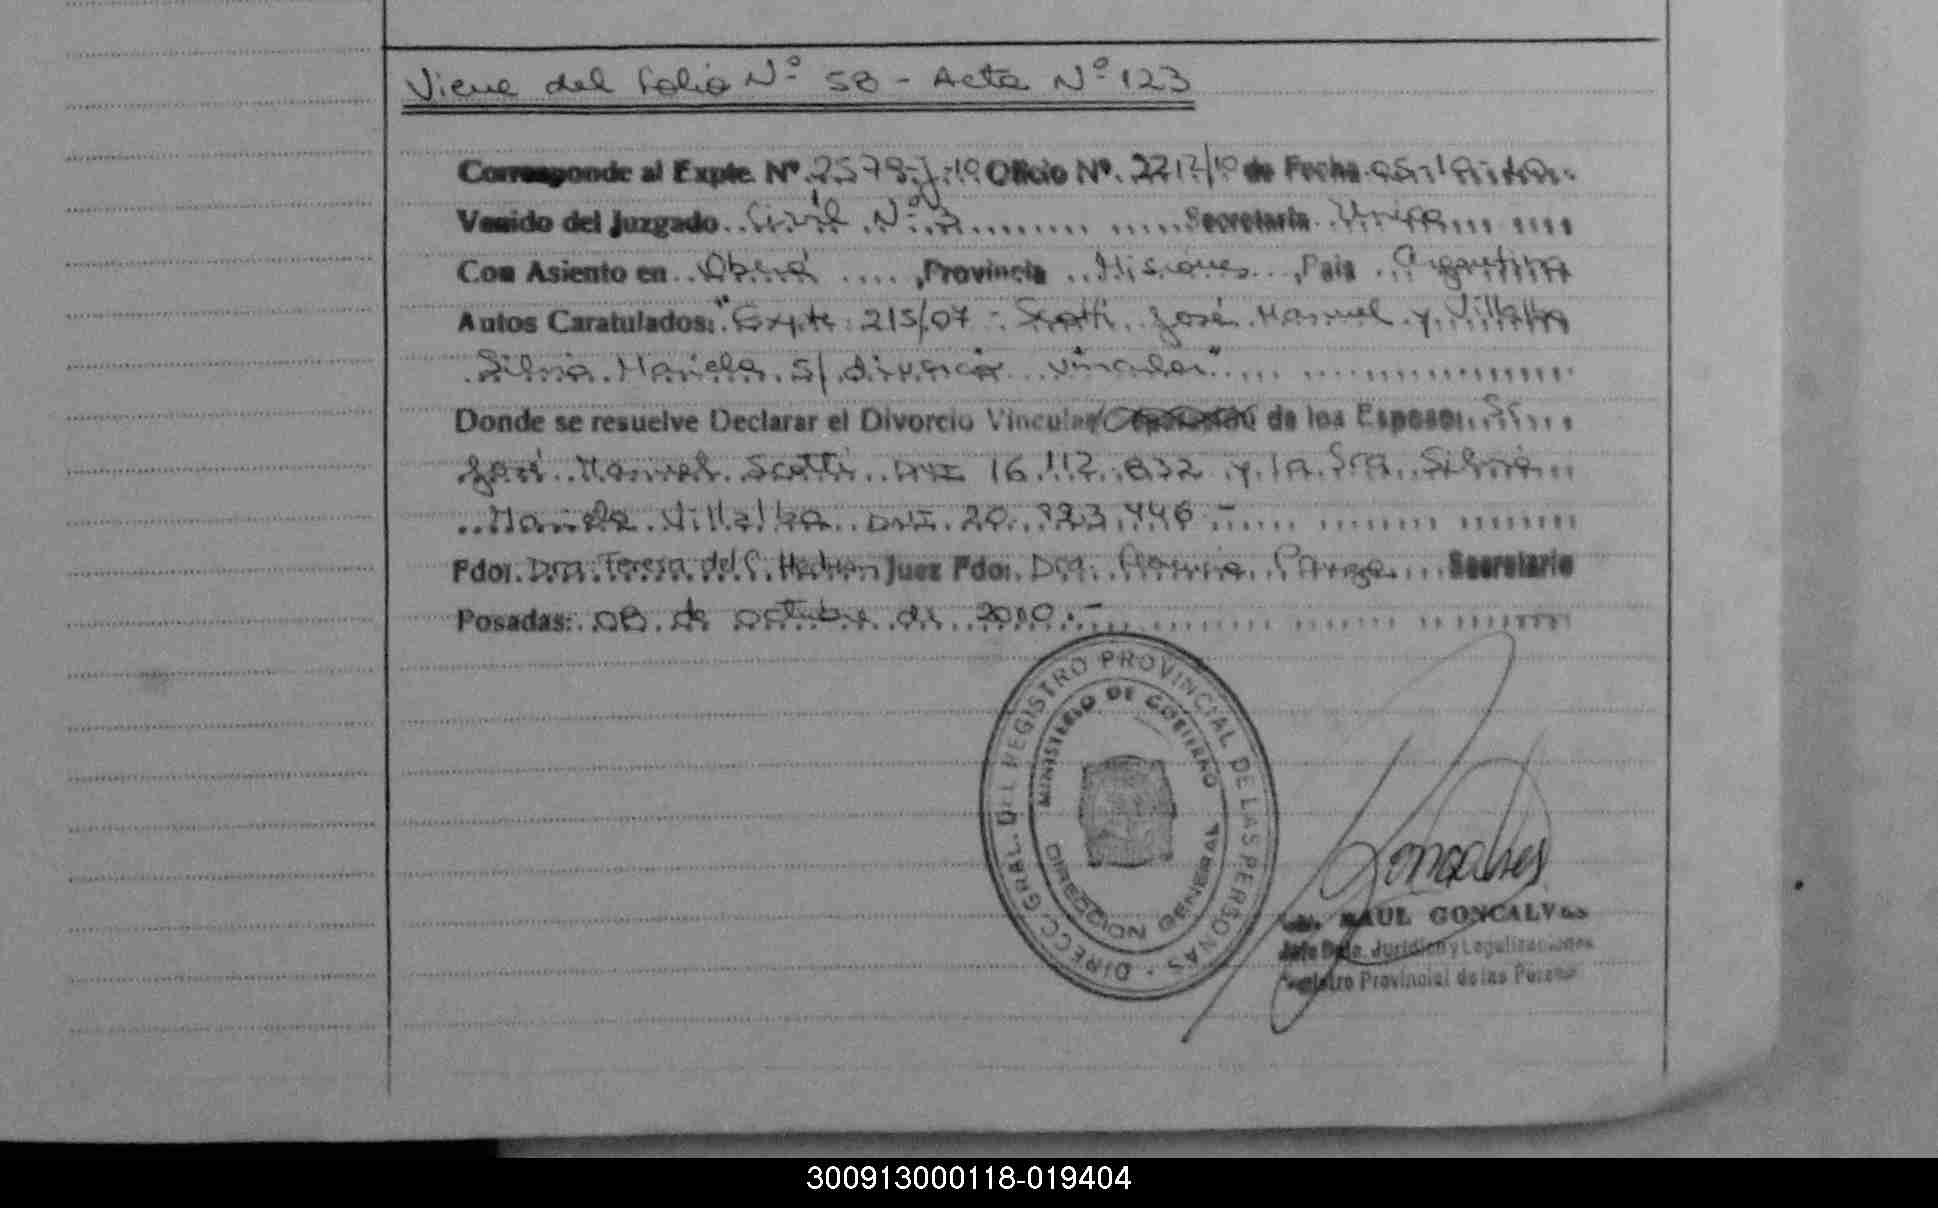 Viene del folio Nº 58 - Acta Nº 123
Corresponde al Expte. Nº 2578-J-10 Oficio Nº. 2217/10 de Fecha
Venido del Juzgado Civil Nº 3 Secretaria Unica
Con Asiento en Oberá, Provincia Misiones, Pais Argentina
Autos Caratulados: "Expte. 215/07 - Scotti José Manuel y Villalba
Silvia Mariela s/ divorcio vincular"
Donde se resuelve Declarar el Divorcio Vincular/ de los Esposos: Sr.
José Manuel Scotti DNI 16.112.832 y la Sra. Silvia
Mariela Villalba DNI. 20.
Fdo: Dra. Teresa del C. Hedman Juez Fdo: Dra. Secretario
Posadas: 08 de octubre de 2010.-
DIRECC. GRAL. DEL REGISTRO PROVINCIAL DE LAS PERSONAS
MINISTERIO DE GOBIERNO
DIRECCION GENERAL
Goncalves
RAUL GONCALVES
Jefe Dpto. Jurídico y Legalizaciones
Registro Provincial de las Personas
300913000118-019404